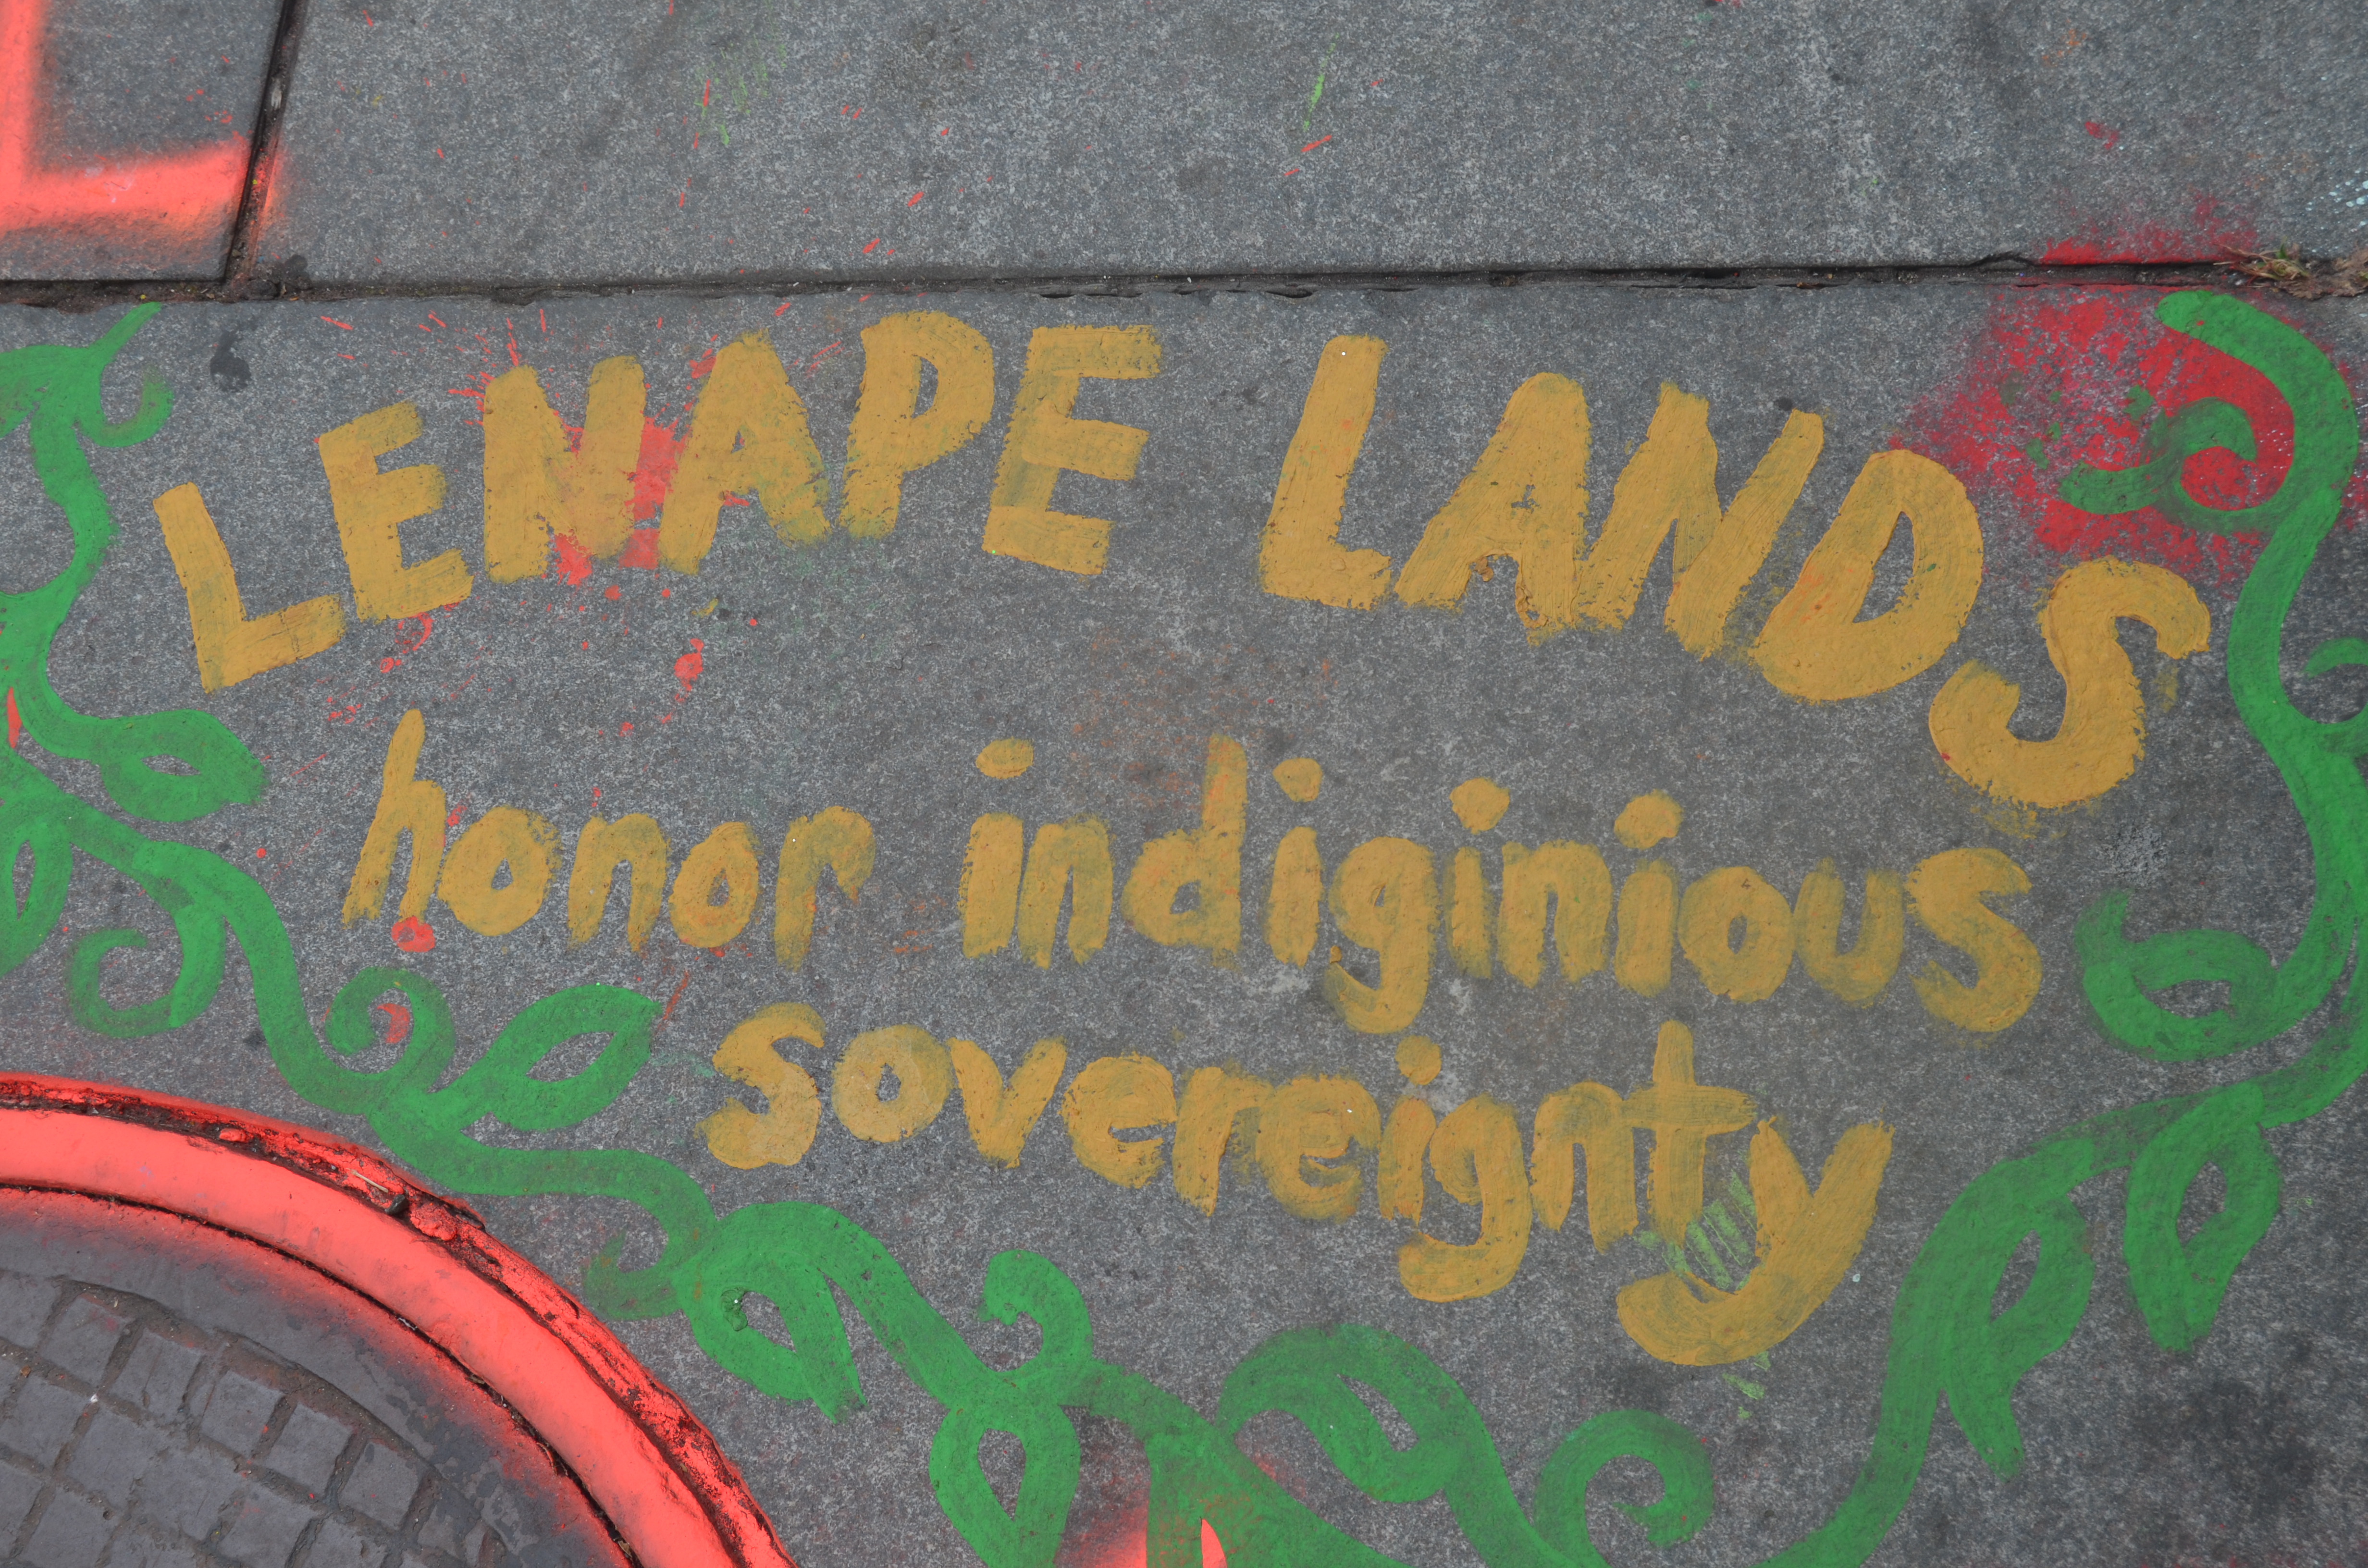 LENAPE LANDS
honor indiginious
sovereignty